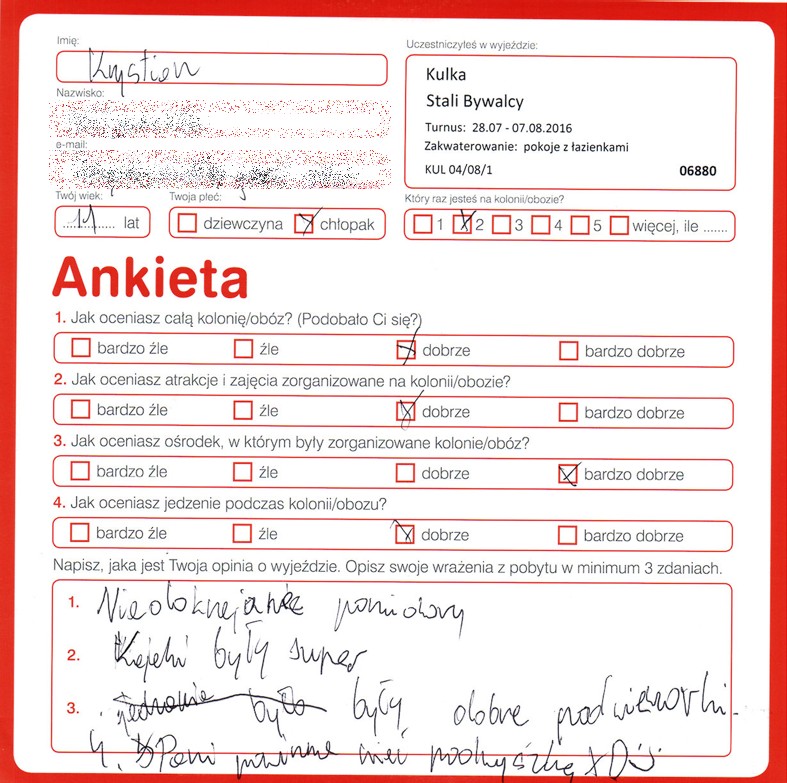 Imię:
Krystian
Uczestniczyłeś w wyjeździe:
Kulka
Stali Bywalcy
Turnus: 28.07 - 07.08.2016
Zakwaterowanie: pokoje z łazienkami
KUL 04/08/1 06880
Nazwisko:
e-mail:
Twój wiek: Twoja płeć: Który raz jesteś na kolonii/obozie?
11 lat dziewczyna chłopak 1 2 3 4 5 więcej, ile .......
Ankieta
1. Jak oceniasz całą kolonię/obóz? (Podobało Ci się?)
bardzo źle źle dobrze bardzo dobrze
2. Jak oceniasz atrakcje i zajęcia zorganizowane na kolonii/obozie?
bardzo źle źle dobrze bardzo dobrze
3. Jak oceniasz ośrodek, w którym były zorganizowane kolonie/obóz?
bardzo źle źle dobrze bardzo dobrze
4. Jak oceniasz jedzenie podczas kolonii/obozu?
bardzo źle źle dobrze bardzo dobrze
Napisz, jaka jest Twoja opinia o wyjeździe. Opisz swoje wrażenia z pobytu w minimum 3 zdaniach.
1.
2. były super
3. jedzenie było były dobre
4. Pani mieć XD